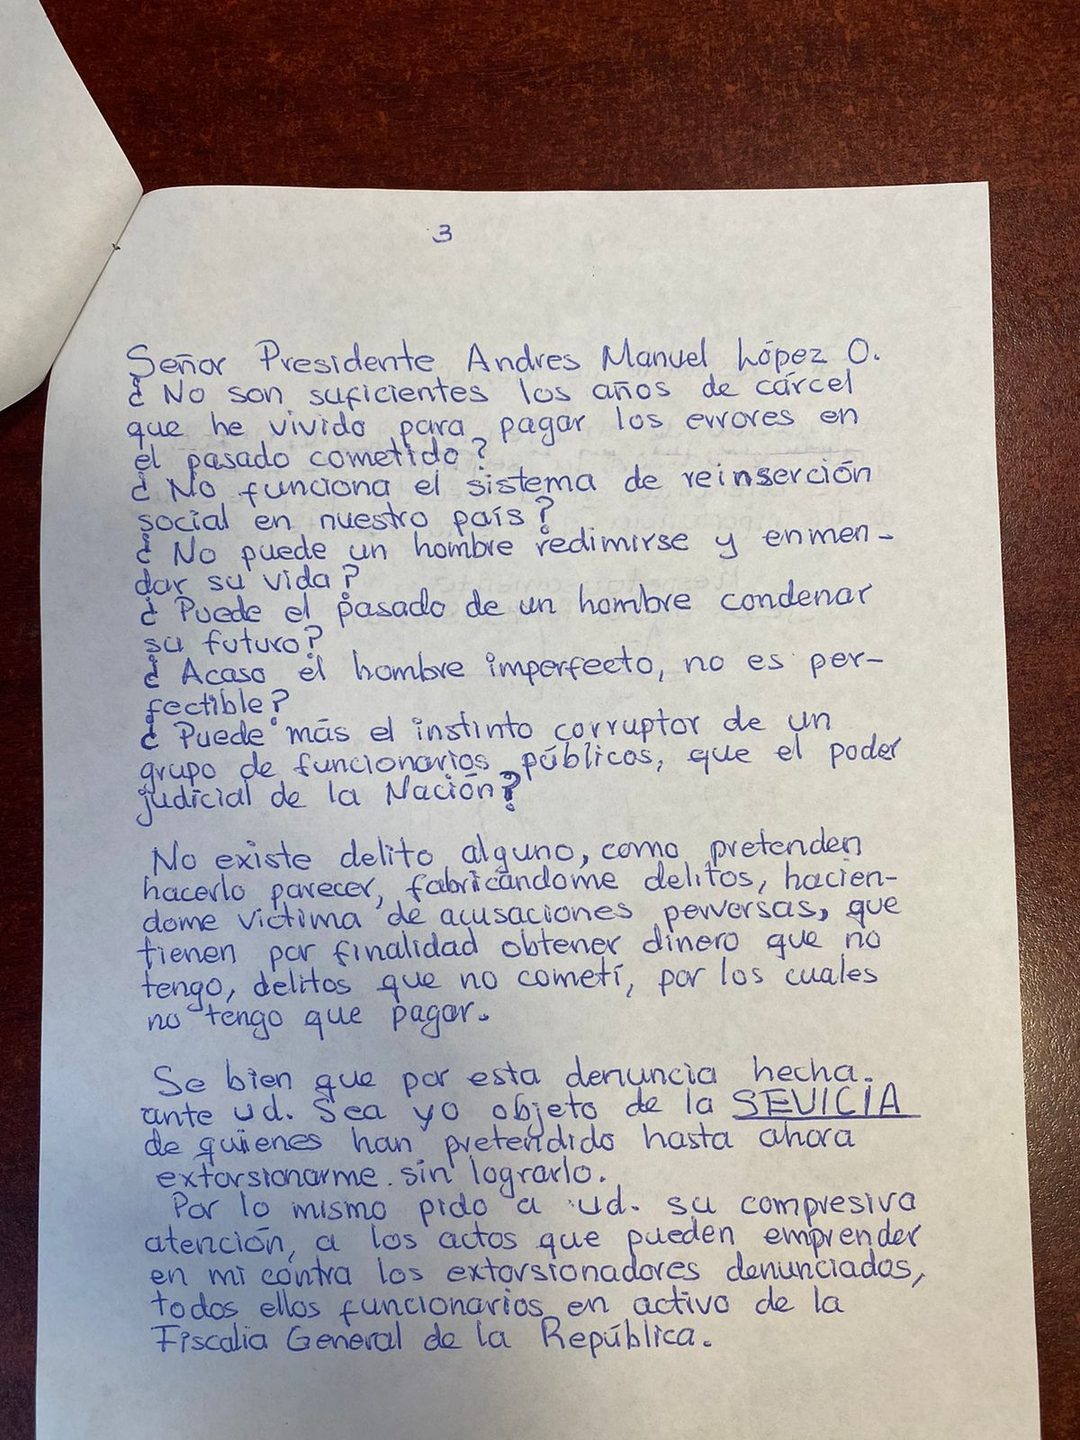 3
Señor Presidente Andres Manuel López O.
¿ No son suficientes los años de cárcel
que he vivido para pagar los errores en
el pasado cometido?
¿ No funciona el sistema de reinserción
social en nuestro país?
¿ No puede un hombre redimirse y enmen-
dar su vida?
¿ Puede el pasado de un hombre condenar
su futuro?
¿ Acaso el hombre imperfecto, no es per-
fectible?
¿ Puede más el instinto corruptor de un
grupo de funcionarios públicos, que el poder
judicial de la Nación?
No existe delito alguno, como pretenden
hacerlo parecer, fabricándome delitos, hacien-
dome victima de acusaciones perversas, que
tienen por finalidad obtener dinero que no
tengo, delitos que no cometí, por los cuales
no tengo que pagar.
Se bien que por esta denuncia hecha.
ante ud. Sea yo objeto de la SEVICIA
de quienes han pretendido hasta ahora
extorsionarme. sin lograrlo.
Por lo mismo pido a ud. su compresiva
atención, a los actos que pueden emprender
en mi contra los extorsionadores denunciados,
todos ellos funcionarios en activo de la
Fiscalia General de la República.